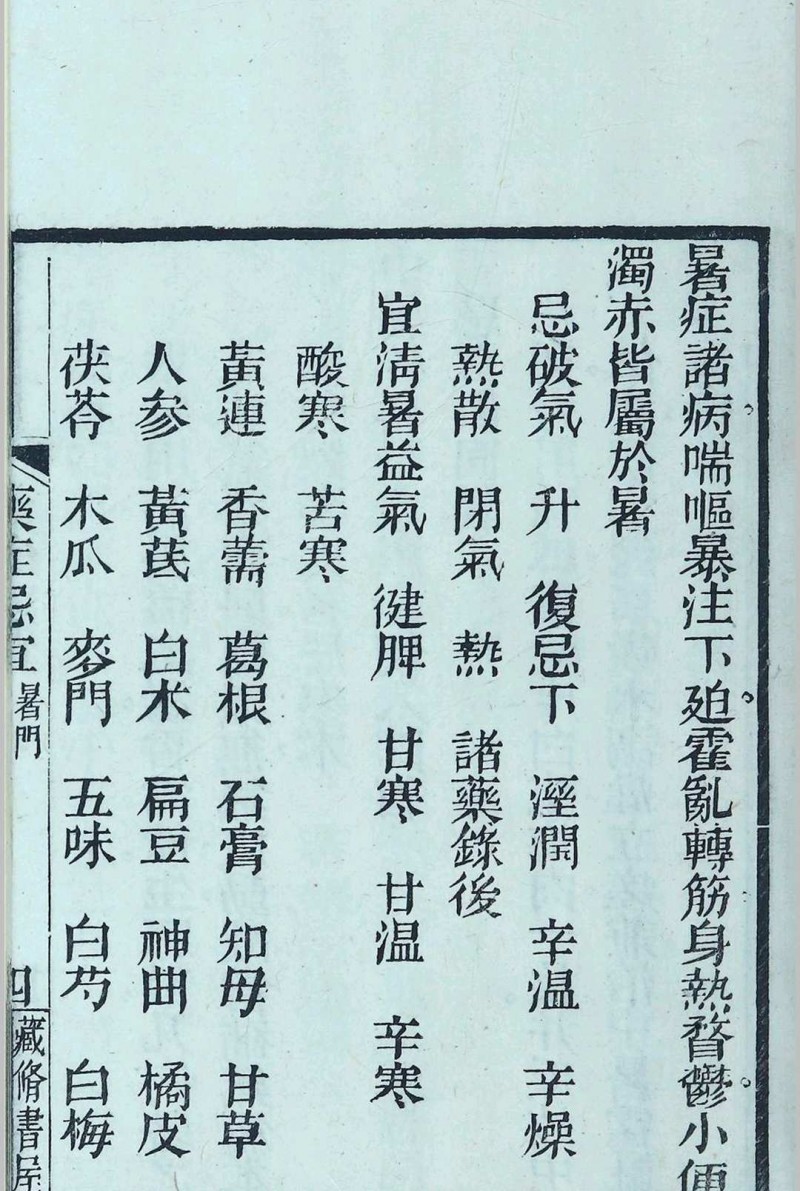 暑症諸病喘嘔暴注下廹霍亂轉筋身熱瞀鬱小便
濁赤皆屬於暑
忌破氣　升　復忌下　溼潤　辛溫　辛燥
熱散　閉氣　熱　諸藥錄後
宜淸暑益氣　健脾　甘寒　甘溫　辛寒
酸寒　苦寒
黃連　香薷　葛根　石膏　知母　甘草
人參　黃芪　白朮　扁豆　神曲　橘皮
茯苓　木瓜　麥門　五味　白芍　白梅
藥症忌宜　暑門　四　藏脩書屋